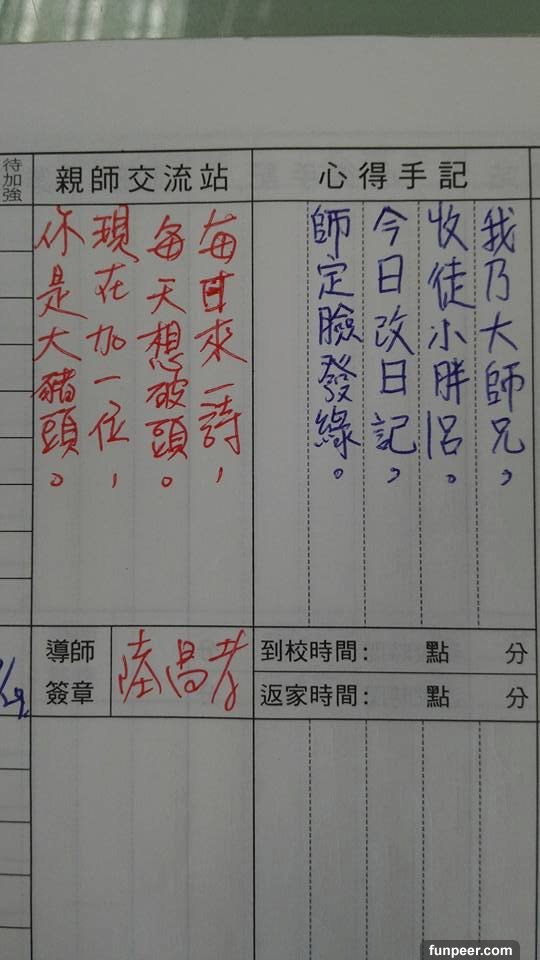 待加強
親師交流站
心得手記
我乃大師兄，
收徒小胖呂。
今日改日記，
師定臉發綠。
每日來一詩，
每天想破頭。
現在加一位，
你是大豬頭。
導師簽章
陸昌孝
到校時間： 點 分
返家時間： 點 分
funpeer.com